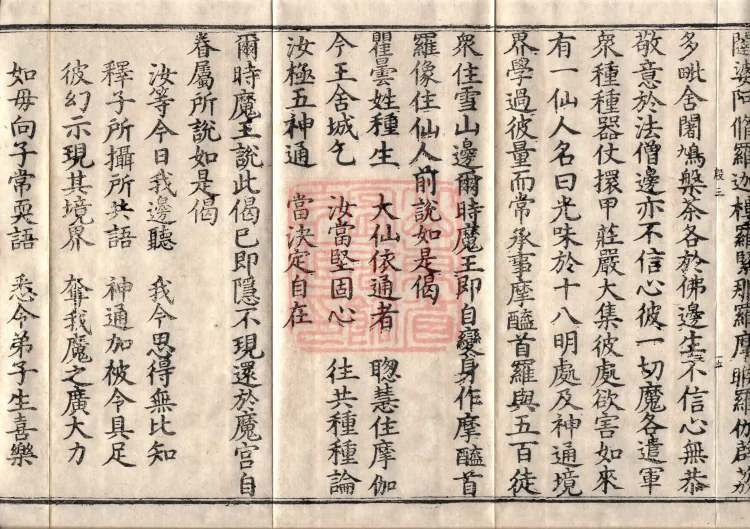 闥婆阿脩羅迦樓羅緊那羅摩睺羅伽薜荔
多毗舍闍鳩槃荼各於佛邊生不信心無恭
殷三
敬意於法僧邊亦不信心彼一切魔各遣軍
衆種種器仗擐甲莊嚴大集彼處欲害如來
有一仙人名曰光味於十八明處及神通境
界學過彼量而常承事摩醯首羅與五百徒
衆住雪山邊爾時魔王即自變身作摩醯首
羅像住仙人前說如是偈
瞿曇姓種生 大仙依通者 聰慧住摩伽
今王舍城乞 汝當堅固心 往共種種論
汝極五神通 當決定自在
爾時魔王說此偈已即隱不現還於魔宮自
眷屬所說如是偈
汝等今日我邊聽 我今思得無比知
釋子所攝所共語 神通加被令具足
彼幻示現其境界 奪我魔之廣大力
如母向子常耎語 悉令弟子生喜樂